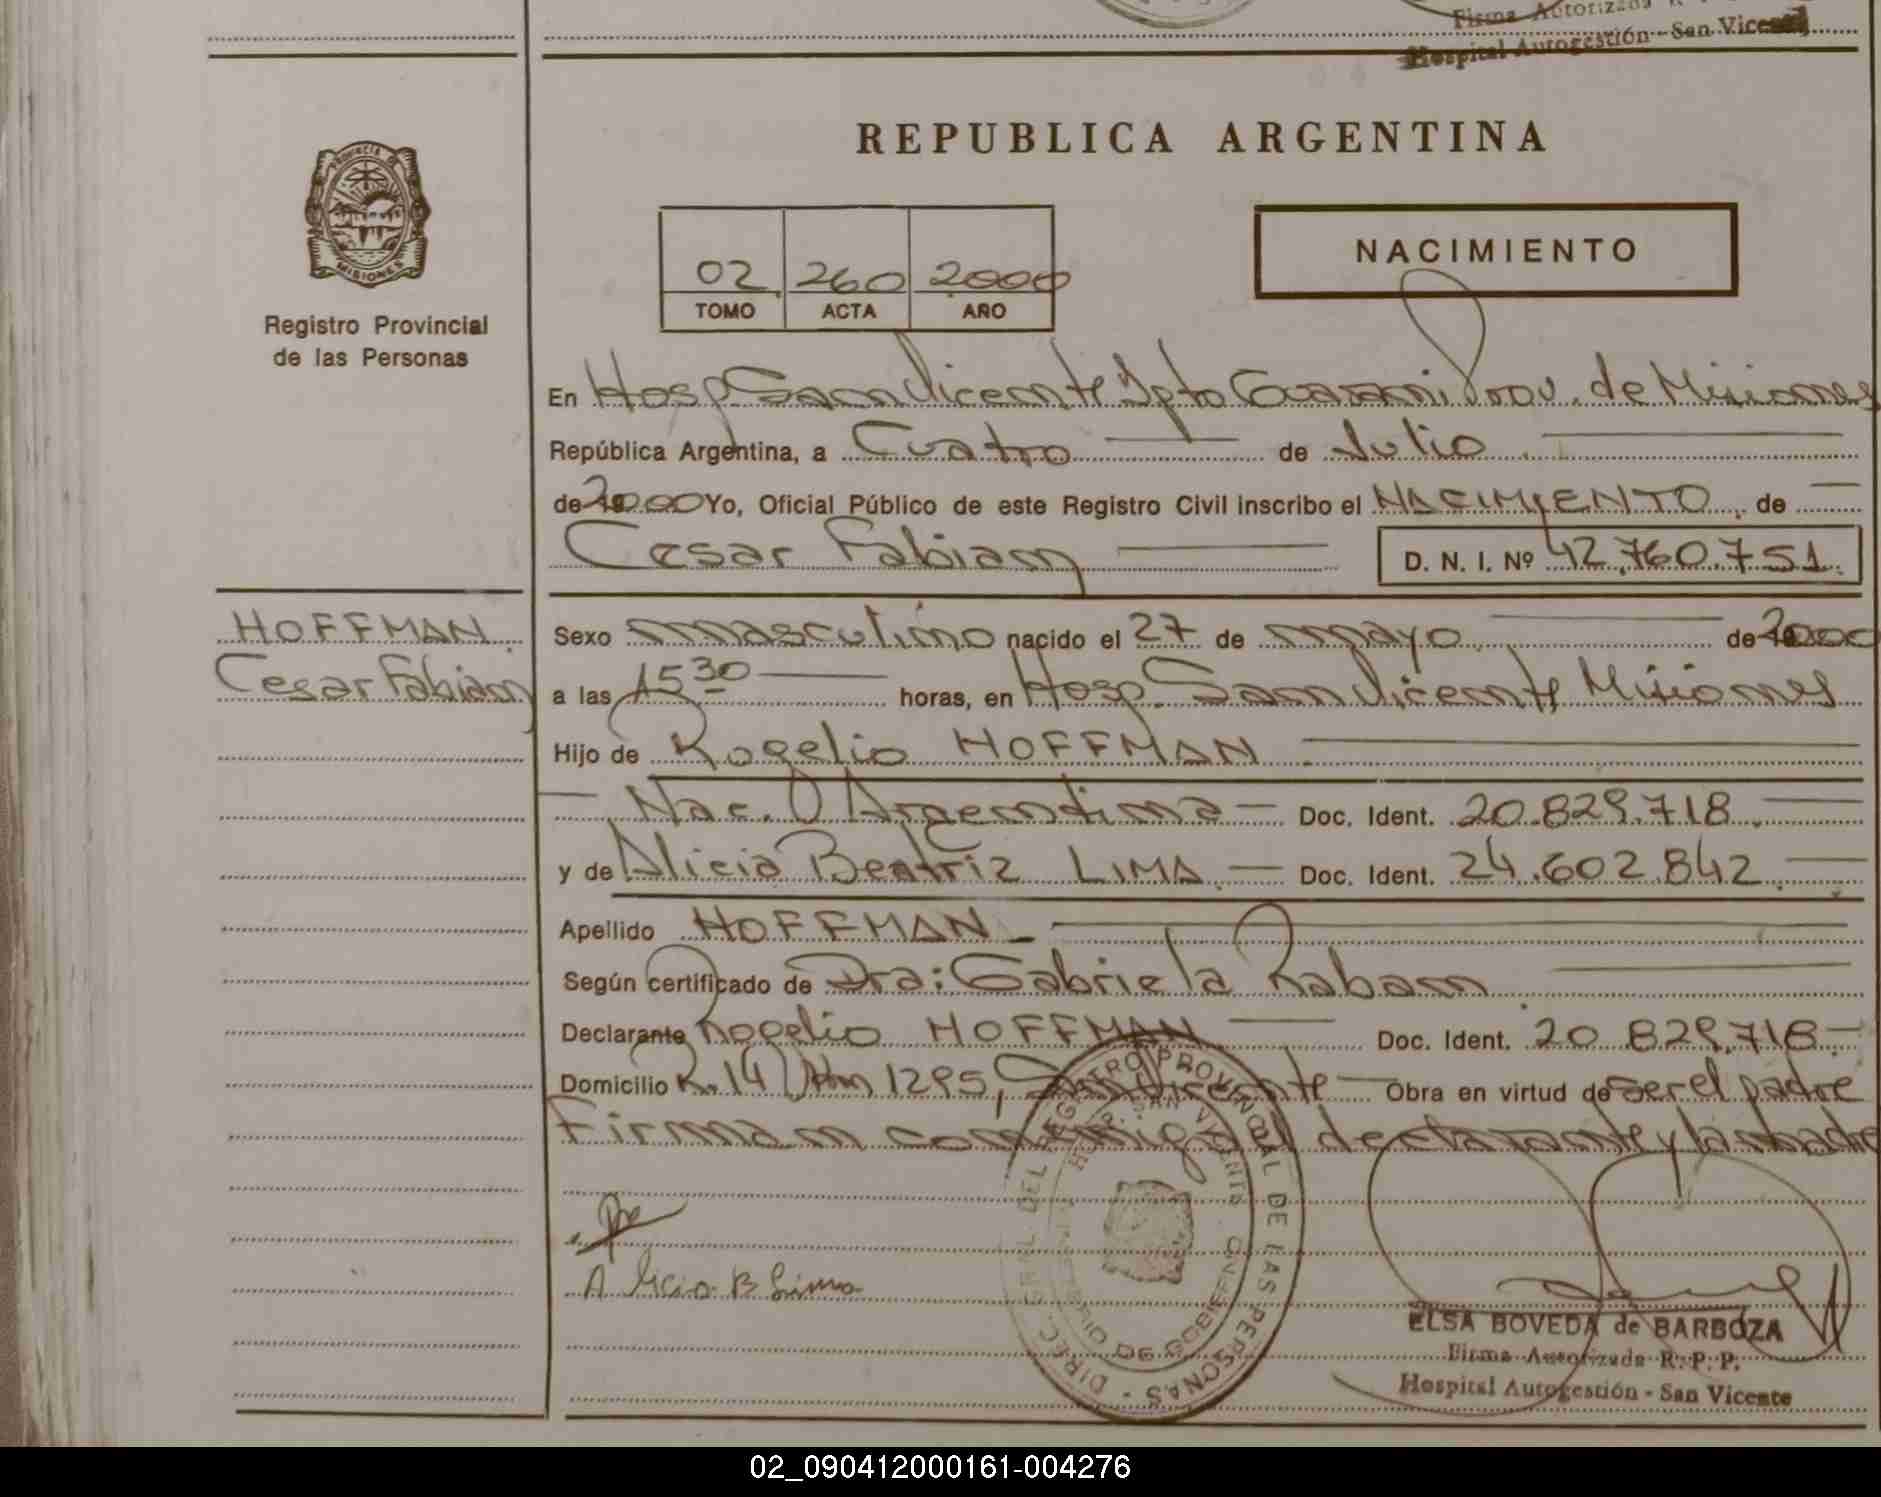 Firma Autorizada R
Hospital Autogestión - San Vicente
REPUBLICA ARGENTINA
PROVINCIA DE
MISIONES
Registro Provincial
de las Personas
02 260 2000
TOMO ACTA AÑO
NACIMIENTO
En Hosp San Vicente Dpto Guarani Prov. de Misiones
República Argentina, a Cuatro de Julio
de 2000 Yo, Oficial Público de este Registro Civil inscribo el NACIMIENTO de
Cesar Fabian D. N. I. Nº 42.760.751.
HOFFMAN
Cesar Fabian
Sexo masculino nacido el 27 de mayo de 2000
a las 15 30 horas, en Hosp. San Vicente Misiones
Hijo de Rogelio HOFFMAN
Nac. Argentina Doc. Ident. 20.829.718
y de Alicia Beatriz LIMA. Doc. Ident. 24.602.842.
Apellido HOFFMAN
Según certificado de Dra: Gabriela Raban
Declarante Rogelio HOFFMAN Doc. Ident. 20 829.718
Domicilio R. 14 Km 1295, San Vicente Obra en virtud de ser el padre
Firman conmigo el declarante y la madre
DIREC. GRAL. DEL REGISTRO PROVINCIAL DE LAS PERSONAS
HOSP. SAN VICENTE
MINISTERIO DE GOBIERNO
Alicia B Lima
ELSA BOVEDA de BARBOZA
Firma Autorizada R. P. P.
Hospital Autogestión - San Vicente
02_090412000161-004276